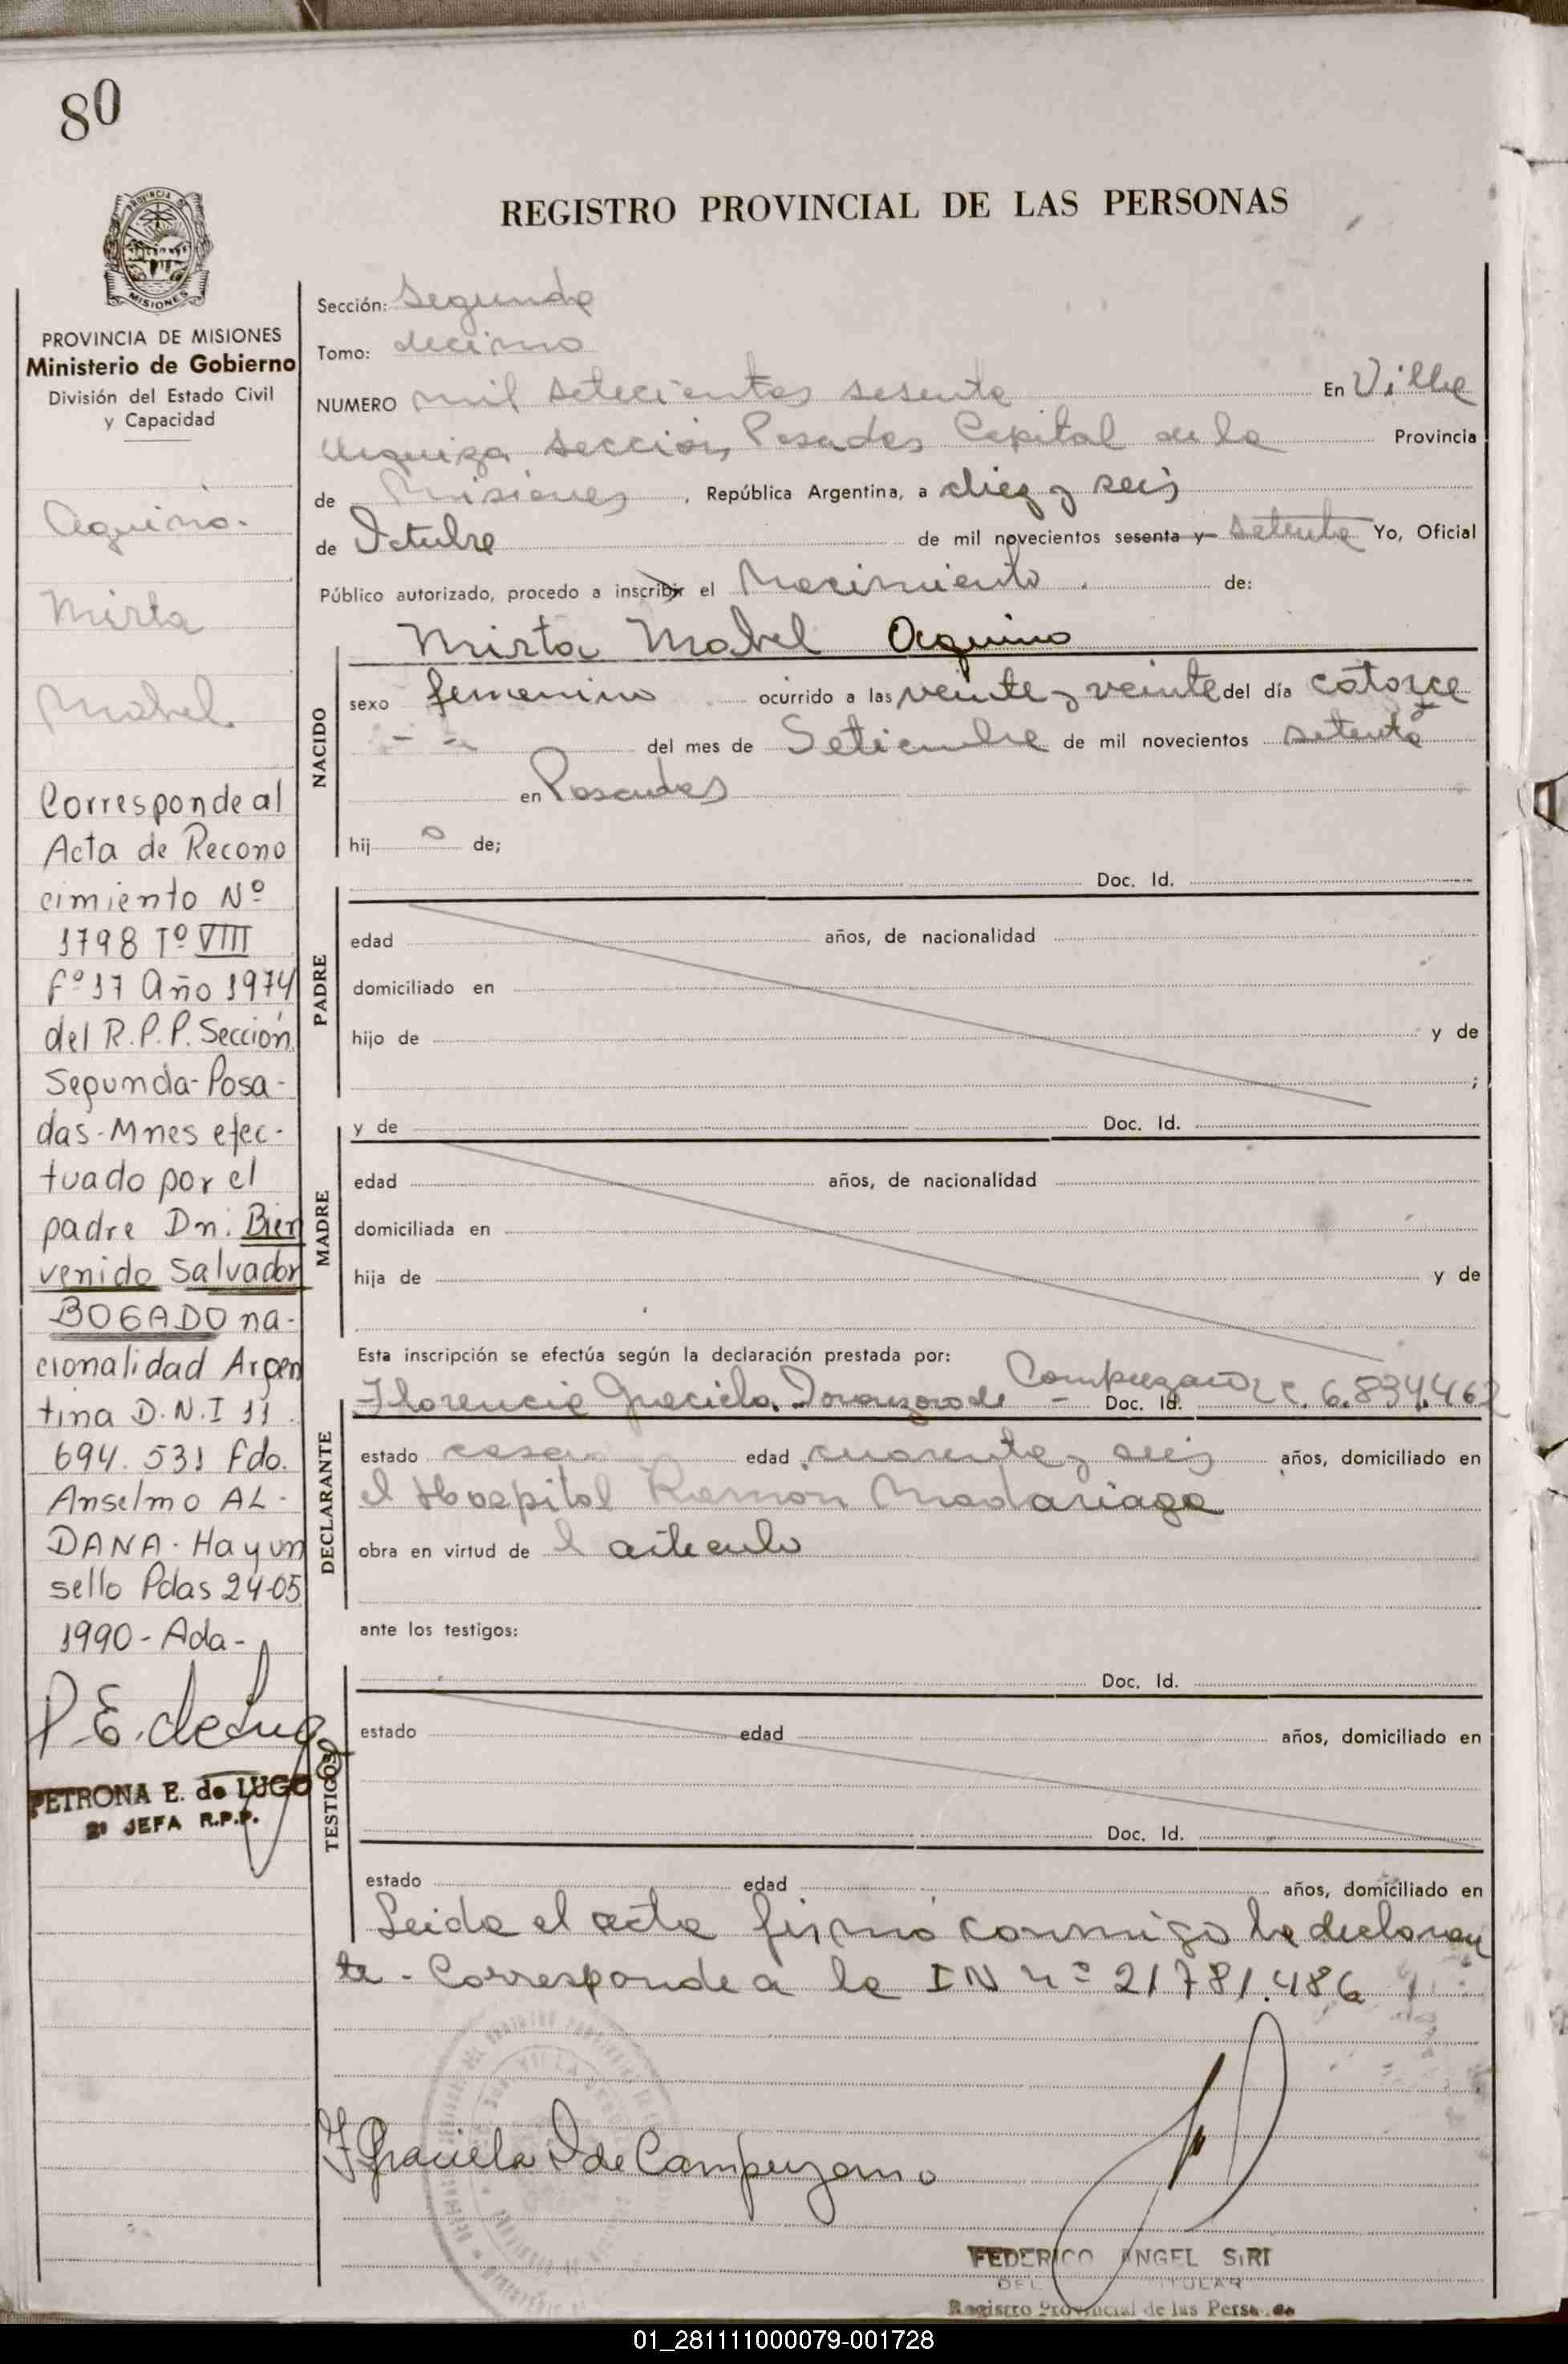 80
REGISTRO PROVINCIAL DE LAS PERSONAS
PROVINCIA DE MISIONES
Ministerio de Gobierno
División del Estado Civil
y Capacidad
Aquino.
Mirta
Mabel.
Corresponde al
Acta de Recono
cimiento Nº
1798 Tº VIII
Fº 17 Año 1974
del R.P.P. Sección
Segunda-Posa-
das-Mnes efec-
tuado por el
padre Dn. Bien
venido Salvador
BOGADO na-
cionalidad Argen
tina D.N.I 11.
694.531 Fdo.
Anselmo AL-
DANA. Hay un
sello Pdas 24-05
1990- Ada-
P E. de Lugo
PETRONA E. de LUGO
2º JEFA R.P.P.
Sección: Segunda
Tomo: decimo
NUMERO mil setecientos sesenta En Villa
Urquiza sección, Posadas Capital de la Provincia
de Misiones, República Argentina, a diez y seis
de Octubre de mil novecientos sesenta y setenta Yo, Oficial
Público autorizado, procedo a inscribir el Nacimiento de:
Mirta Mabel Aquino
NACIDO
sexo femenino ocurrido a las veinte y veinte del día catorce
- - del mes de Setiembre de mil novecientos setenta
en Posadas
hij a de;
Doc. Id.
PADRE
edad años, de nacionalidad
domiciliado en
hijo de y de
;
y de Doc. Id.
MADRE
edad años, de nacionalidad
domiciliada en
hija de y de
Esta inscripción se efectúa según la declaración prestada por:
Florencia Graciela de Campuzano - Doc. Id. L C. 6.834.462
DECLARANTE
estado casada edad cuarenta y seis años, domiciliado en
el Hospital Ramon Madariaga
obra en virtud de l articulo
ante los testigos:
Doc. Id.
TESTIGOS
estado edad años, domiciliado en
Doc. Id.
estado edad años, domiciliado en
Leida el acta firmó conmigo la declaran
te - Corresponde a la I N nº 21781.486
F Graciela I de Campuzano
FEDERICO ANGEL SIRI
DEL TITULAR
Registro Provincial de las Personas
01_281111000079-001728